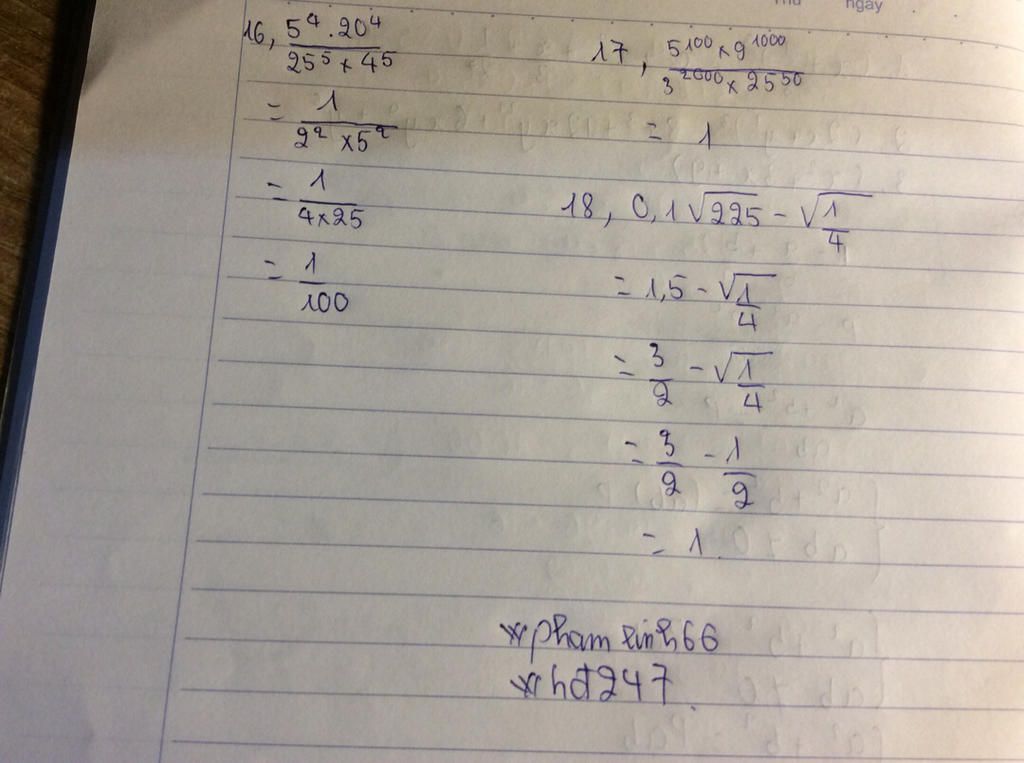 Thứ ngày
16, 5⁴ . 20⁴ / 25⁵ x 4⁵
= 1 / 2² x 5²
= 1 / 4x25
= 1 / 100
17, 5¹⁰⁰ x 9¹⁰⁰⁰ / 3²⁰⁰⁰ x 25⁵⁰
= 1
18, 0,1√225 - √1/4
= 1,5 - √1/4
= 3/2 - √1/4
= 3/2 - 1/2
= 1.
*pham linh66
*hđ247.